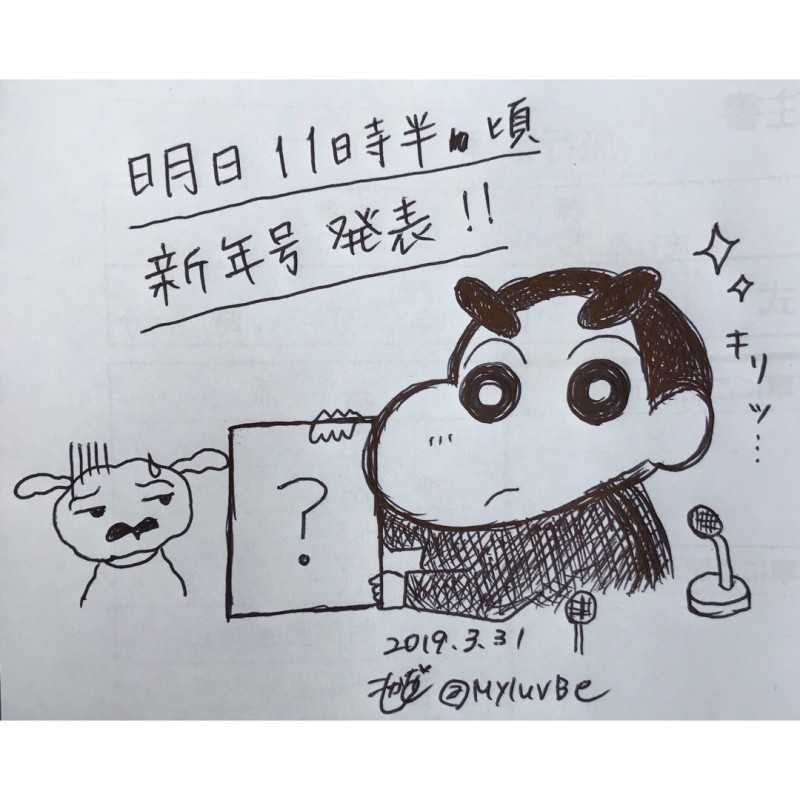 明日11時半の頃
新年号 発表!!
キリッ…
?
2019.3.31
@MyluvBe